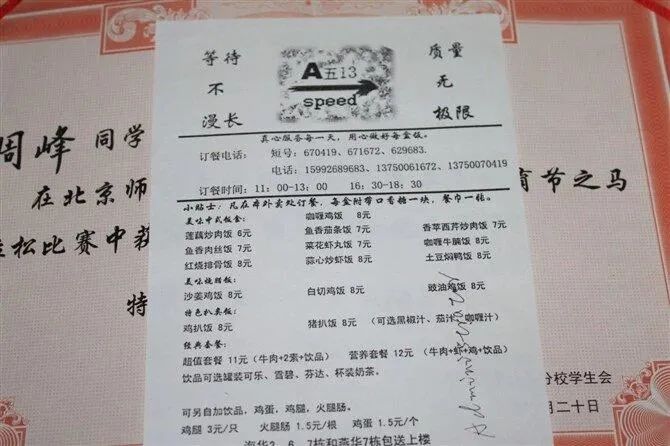 等待
不
漫长
A五13
speed
质量
无
极限
真心服务每一天，用心做好每盒饭。
订餐电话： 短号：670419、671672、629683.
电话：15992689683、13750061672、13750070419
订餐时间：11：00-13：00 16：30-18：30
小贴士：凡在本外卖处订餐，每盒附带口香糖一块，餐巾一张。
美味中式饭盒： 咖喱鸡饭 8元
莲藕炒肉饭 6元 鱼香茄条饭 7元 香苹西芹炒肉饭 7元
鱼香肉丝饭 7元 菜花虾丸饭 7元 咖喱牛腩饭 8元
红烧排骨饭 8元 蒜心炒虾饭 8元 土豆焖鸭饭 8元
美味烧腊饭：
沙姜鸡饭 8元 白切鸡饭 8元 豉油鸡饭 8元
特色扒类饭：
鸡扒饭 8元 猪扒饭 8元 （可选黑椒汁、茄汁、咖喱汁）
经典套餐：
超值套餐 11元（牛肉+2素+饮品） 营养套餐 12元 （牛肉+虾+鸡+饮品）
饮品可选罐装可乐、雪碧、芬达、杯装奶茶。
可另自加饮品，鸡蛋，鸡腿，火腿肠。
鸡腿 3元/只 火腿肠 1.5元/根 鸡蛋 1.5元/个
海华2、6、7栋和燕华7栋包送上楼
周峰 同学
在北京师
育节之马
拉松比赛中获
特
分校学生会
月二十日